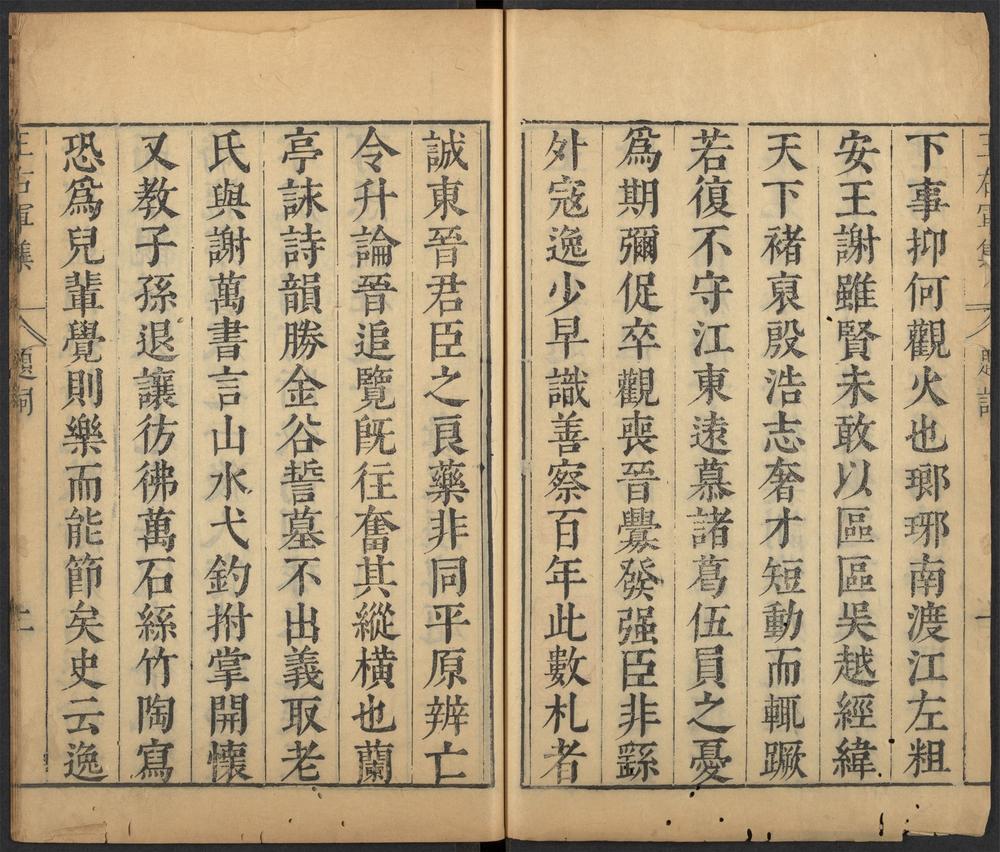 下事抑何觀火也瑯琊南渡江左粗
安王謝雖賢未敢以區區吳越經緯
天下褚裒殷浩志奢才短動而輒蹶
若復不守江東遠慕諸葛伍員之憂
為期彌促卒觀喪晉釁發强臣非繇
外寇逸少早識善察百年此數札者
誠東晉君臣之良藥非同平原辨亡
令升論晉追覽旣往奮其縱橫也蘭
亭詠詩韻勝金谷誓墓不出義取老
氏與謝萬書言山水弋釣拊掌開懷
又教子孫退讓彷彿萬石絲竹陶寫
恐爲兒輩覺則樂而能節矣史云逸